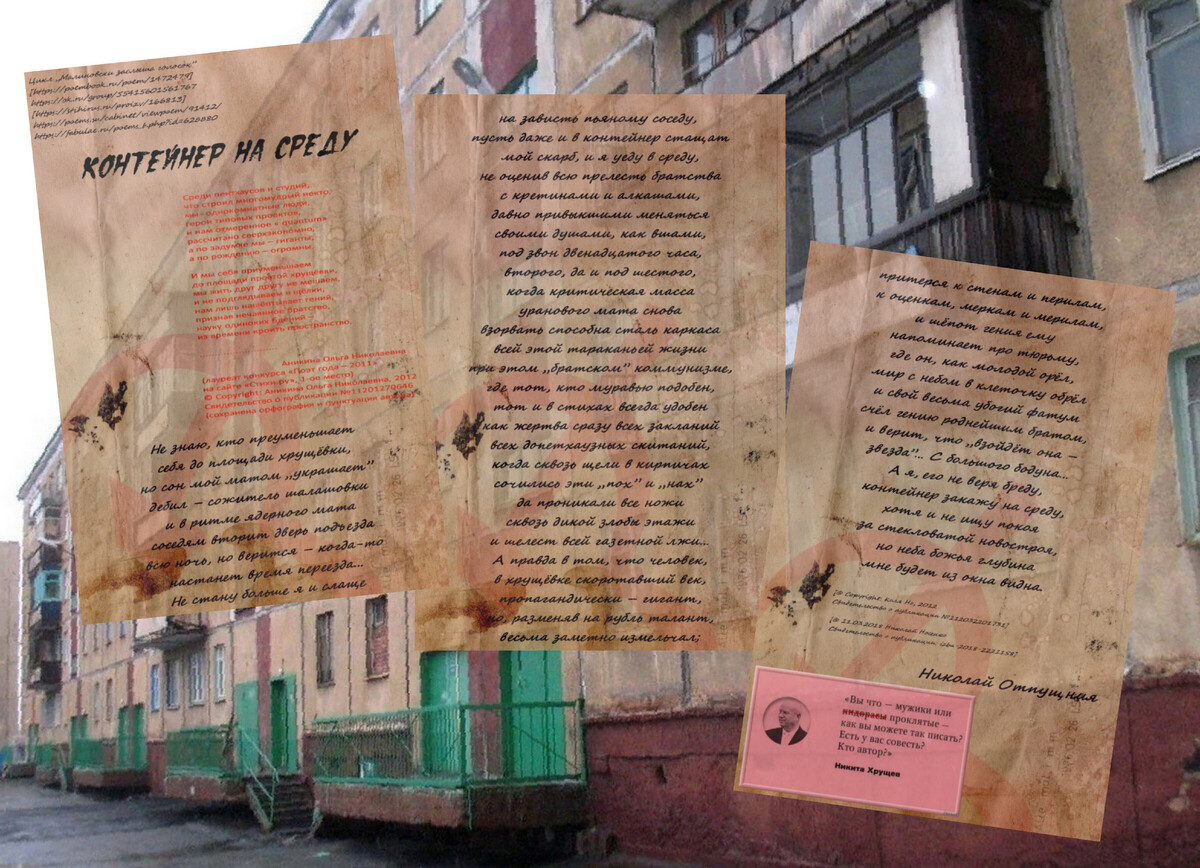 Цикл „Малиновски заслыша голосок"
[https://poembook.ru/poem/1472479]
https://ok.ru/group/55415601561767
[https://stihirus.ru/proizv/166815]
https://poems.su/cabinet/viewpoem/91412/
https://fabulae.ru/poems_b.php?id=628880
КОНТЕЙНЕР НА СРЕДУ
Среди пентхаусов и студий,
что строил многомудрый некто,
мы - однокомнатные люди,
герои типовых проектов,
и нам отмеренное « quantum»
рассчитано сверхэкономно,
а по задумке мы – гиганты,
а по рождению – огромны.
И мы себя приуменьшаем
до площади простой хрущёвки,
мы жить друг другу не мешаем,
и не подглядываем в щёлки,
нам лишь нашёптывает гений,
признав нечаянное братство,
науку одиноких бдений –
из времени кроить пространство.
Аникина Ольга Николаевна
(лауреат конкурса «Поэт года – 2011»
на сайте «Стихи.ру», 1-ое место)
© Copyright: Аникина Ольга Николаевна, 2012
Свидетельство о публикации №11201270646
[сохранена орфография и пунктуация автора]
Не знаю, кто преуменьшает
себя до площади хрущёвки,
но сон мой матом „украшает"
дебил – сожитель шалашовки
и в ритме ядерного мата
соседям вторит дверь подъезда
всю ночь, но верится – когда-то
настанет время переезда...
Не стану больше я и слаще
на зависть пьяному соседу,
пусть даже и в контейнер стащат
мой скарб, и я уеду в среду,
не оценив всю прелесть братства
с кретинами и алкашами,
давно привыкшими меняться
своими душами, как вшами,
под звон двенадцатого часа,
второго, да и под шестого,
когда критическая масса
уранового мата снова
взорвать способна сталь каркаса
всей этой тараканьей жизни
при этом „братском" коммунизме,
где тот, кто муравью подобен,
тот и в стихах всегда удобен
как жертва сразу всех закланий
всех допетхаузных скитаний,
когда сквозь щели в кирпичах
сочились эти „пох" и „нах"
да проникали все ножи
сквозь дикой злобы этажи
и шелест всей газетной лжи...
А правда в том, что человек,
в хрущёвке скоротавший век,
пропагандически – гигант,
но, разменяв на рубль талант,
весьма заметно измельчал;
притёрся к стенам и перилам,
к оценкам, меркам и мерилам,
и шёпот гения ему
напоминает про тюрьму,
где он, как молодой орёл,
мир с небом в клеточку обрёл
и свой весьма убогий фатум
счёл гению роднейшим братом,
и верит, что „взойдёт она –
звезда"... С большого бодуна...
А я, его не веря бреду,
контейнер закажу на среду,
хотя и не ищу покоя
за стекловатой новостроя,
но неба божья глубина
мне будет из окна видна.
[© Copyright: Коля Не, 2012
Свидетельство о публикации №112032201731]
[© 21.03.2018 Николай Ноенко
Свидетельство о публикации: izba-2018-2221158]
Николай Отпущения
«Вы что — мужики или
пидорасы проклятые —
как вы можете так писать?
Есть у вас совесть?
Кто автор?»
Никита Хрущев